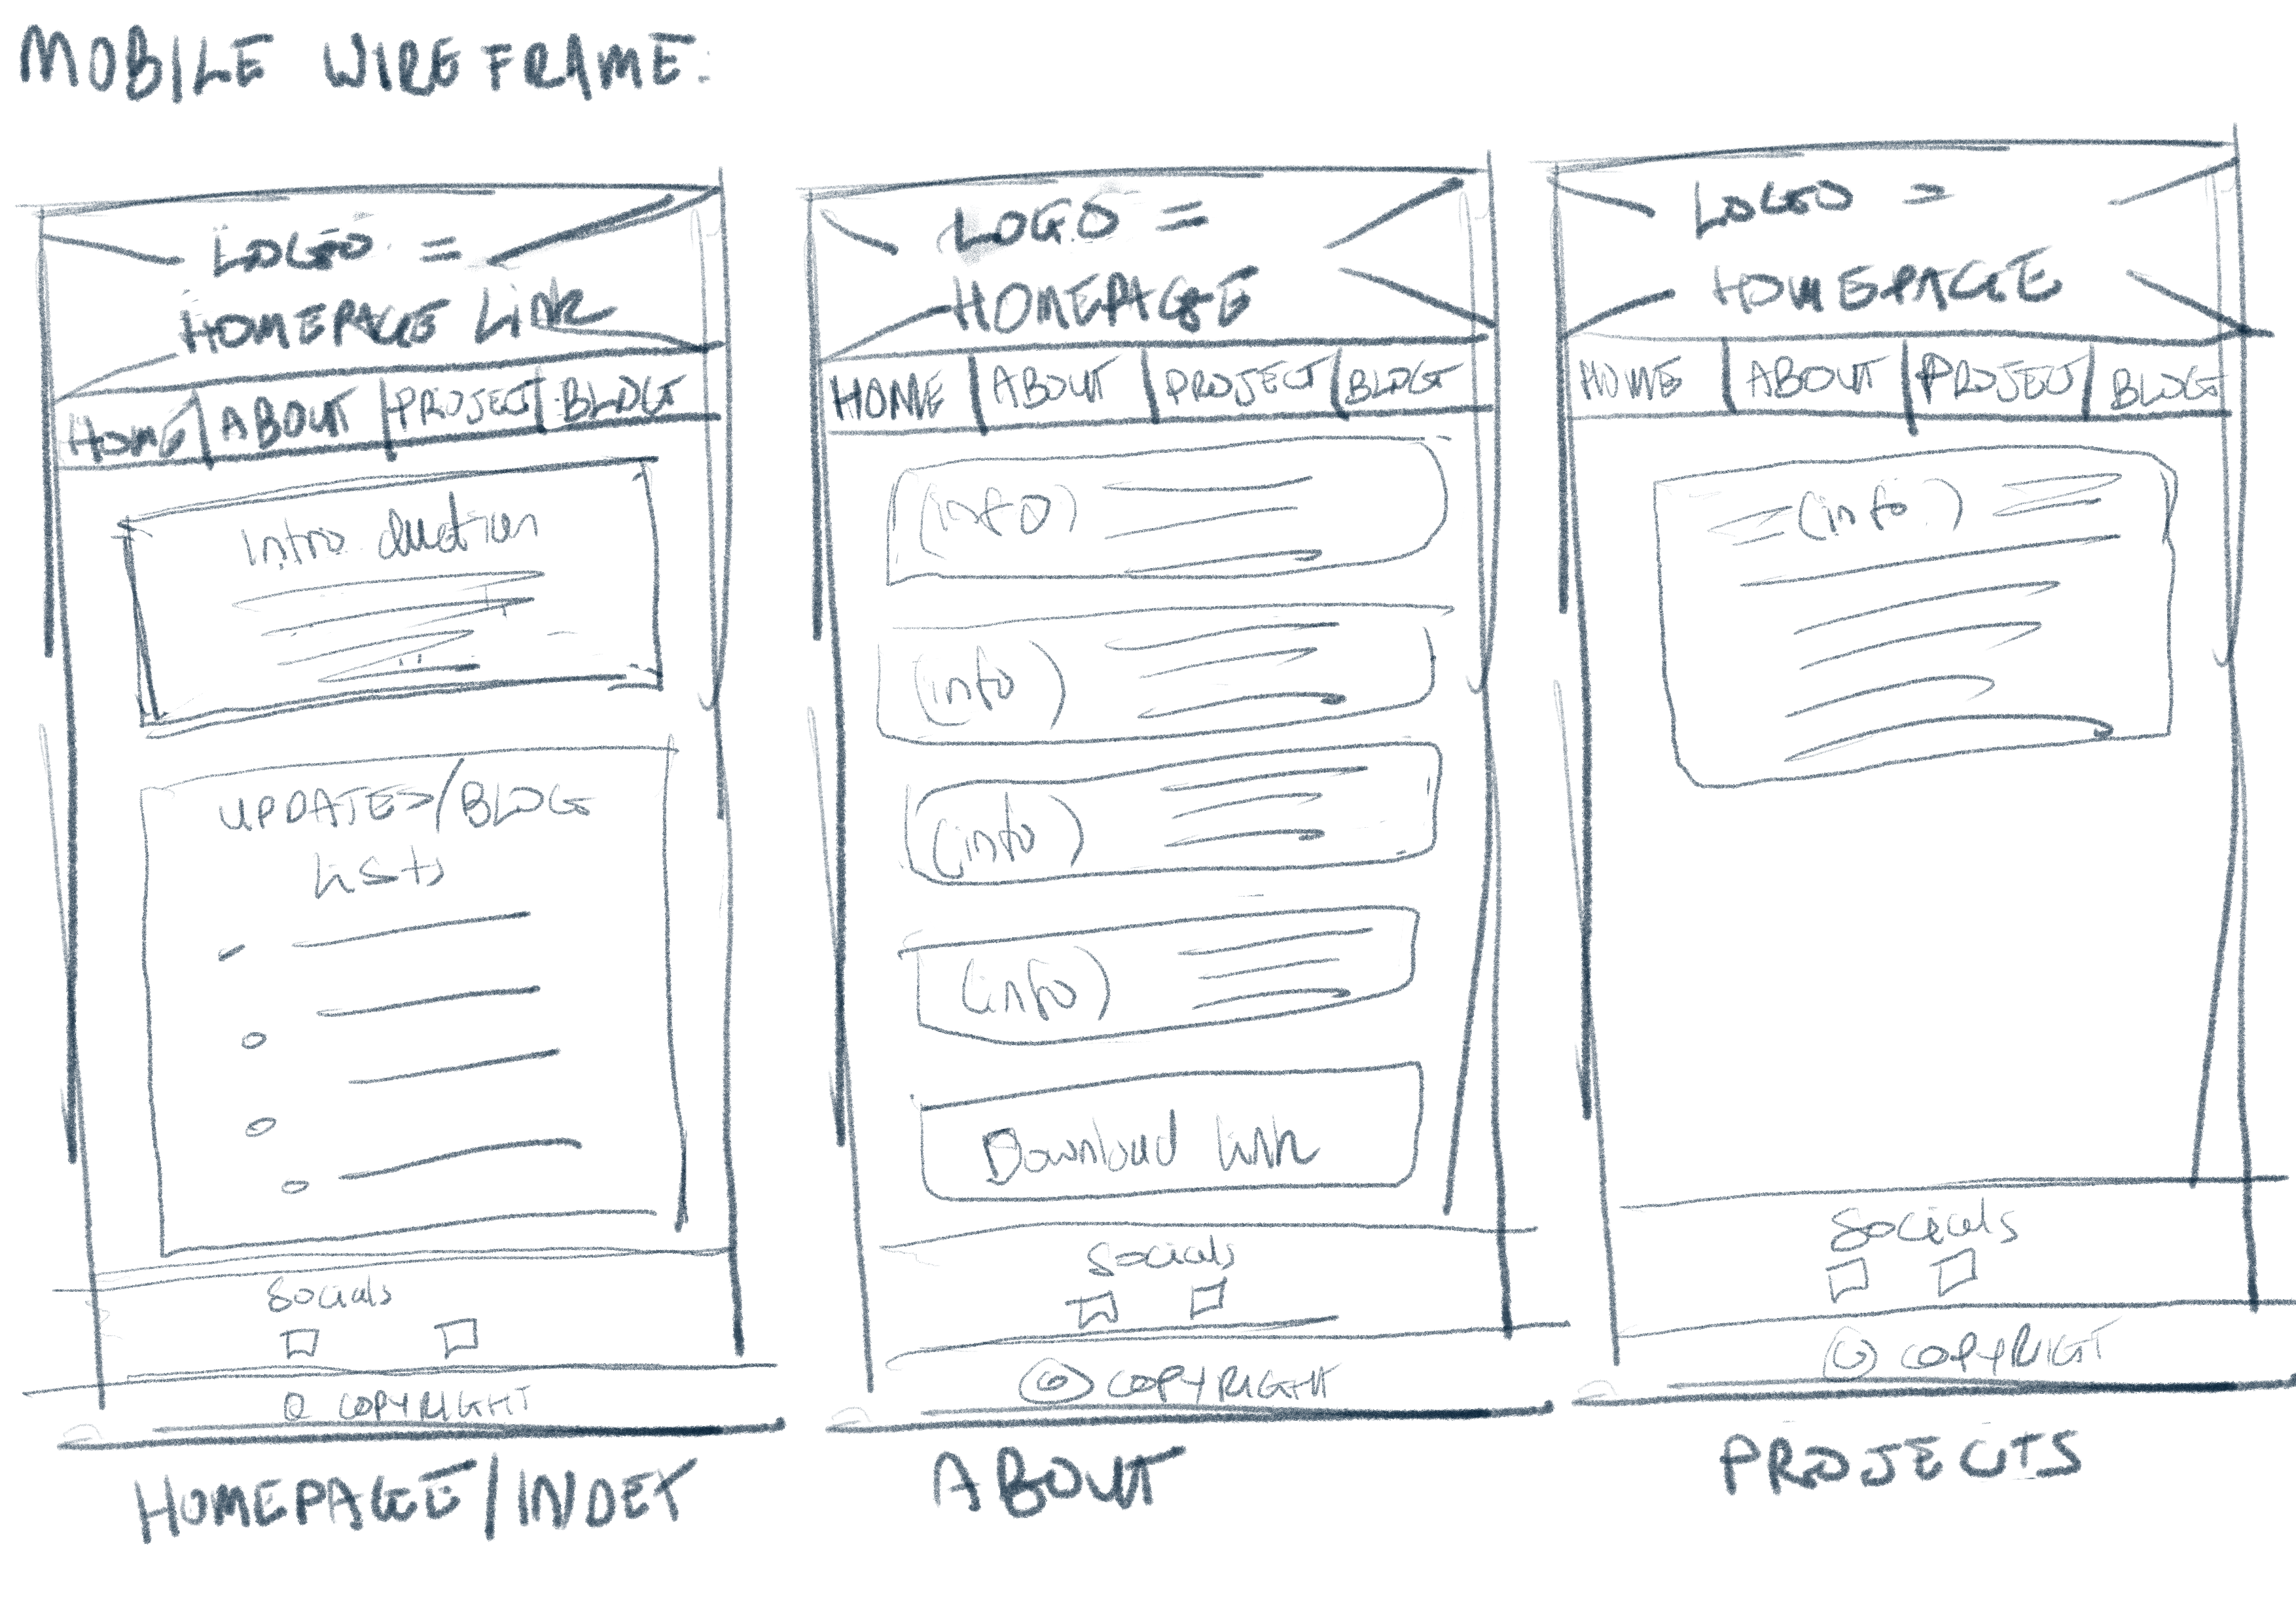 MOBILE WIREFRAME:
LOGO =
HOMEPAGE Link
HOME ABOUT PROJECT BLOG
Introduction
UPDATES/BLOG
Lists
Socials
© COPYRIGHT
HOMEPAGE/INDEX
LOGO =
HOMEPAGE
HOME ABOUT PROJECT BLOG
(info)
(info)
(info)
(info)
Download link
Socials
© COPYRIGHT
ABOUT
LOGO =
HOMEPAGE
HOME ABOUT PROJECT BLOG
(info)
Socials
© COPYRIGHT
PROJECTS